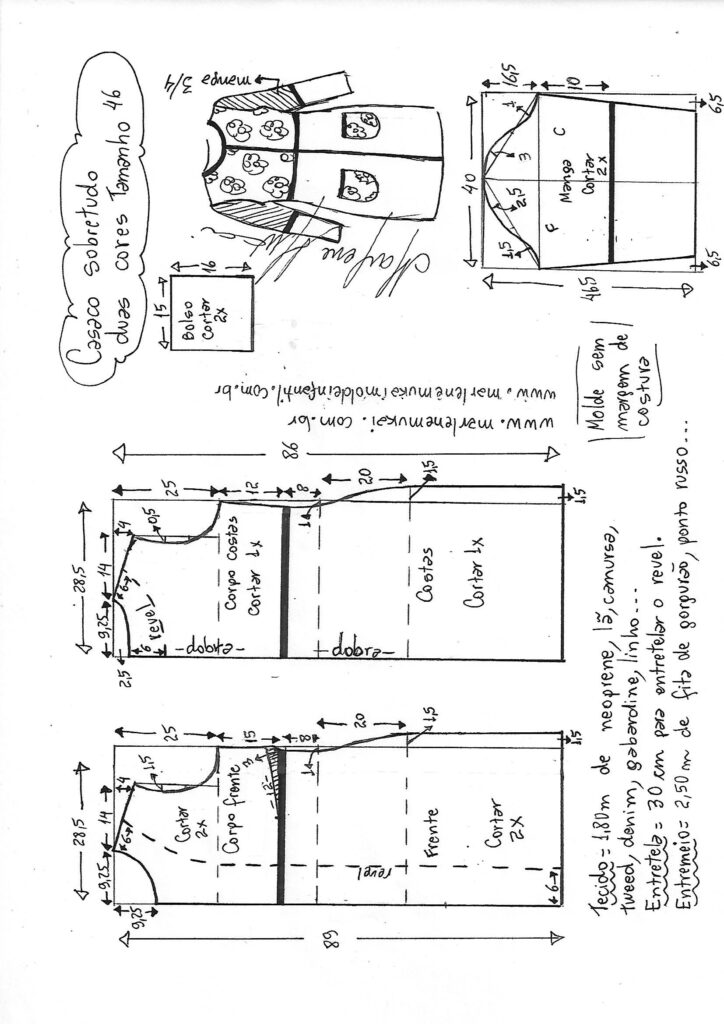 Casaco sobretudo
duas cores Tamanho 46
manga 3/4
16
15
Bolso
Cortar
2x
Marlene Mukai
16,5
10
6,5
40
1
3
2,5
1,5
C
F
Manga
Cortar
2x
46,5
6,5
www.marlenemukaimoldeinfantil.com.br
www.marlenemukai.com.br
Molde sem
margem de
costura
86
25
12
8
20
28,5
4
14
9,25
6
0,5
revel
6
2,5
Corpo costas
Cortar 1x
-dobra-
1
1,5
Costas
Cortar 1x
-dobra-
1,5
25
15
8
20
28,5
4
14
9,25
6
1,5
9,25
Cortar
2x
Corpo frente
3
-12-
1
1,5
revel
Frente
Cortar
2x
6
1,5
89
Tecido = 1,80m de neoprene, lã, camursa,
tweed, denim, gabardine, linho...
Entretela = 30 cm para entretelar o revel.
Entremeio = 2,50 m de fita de gorgurão, ponto russo...